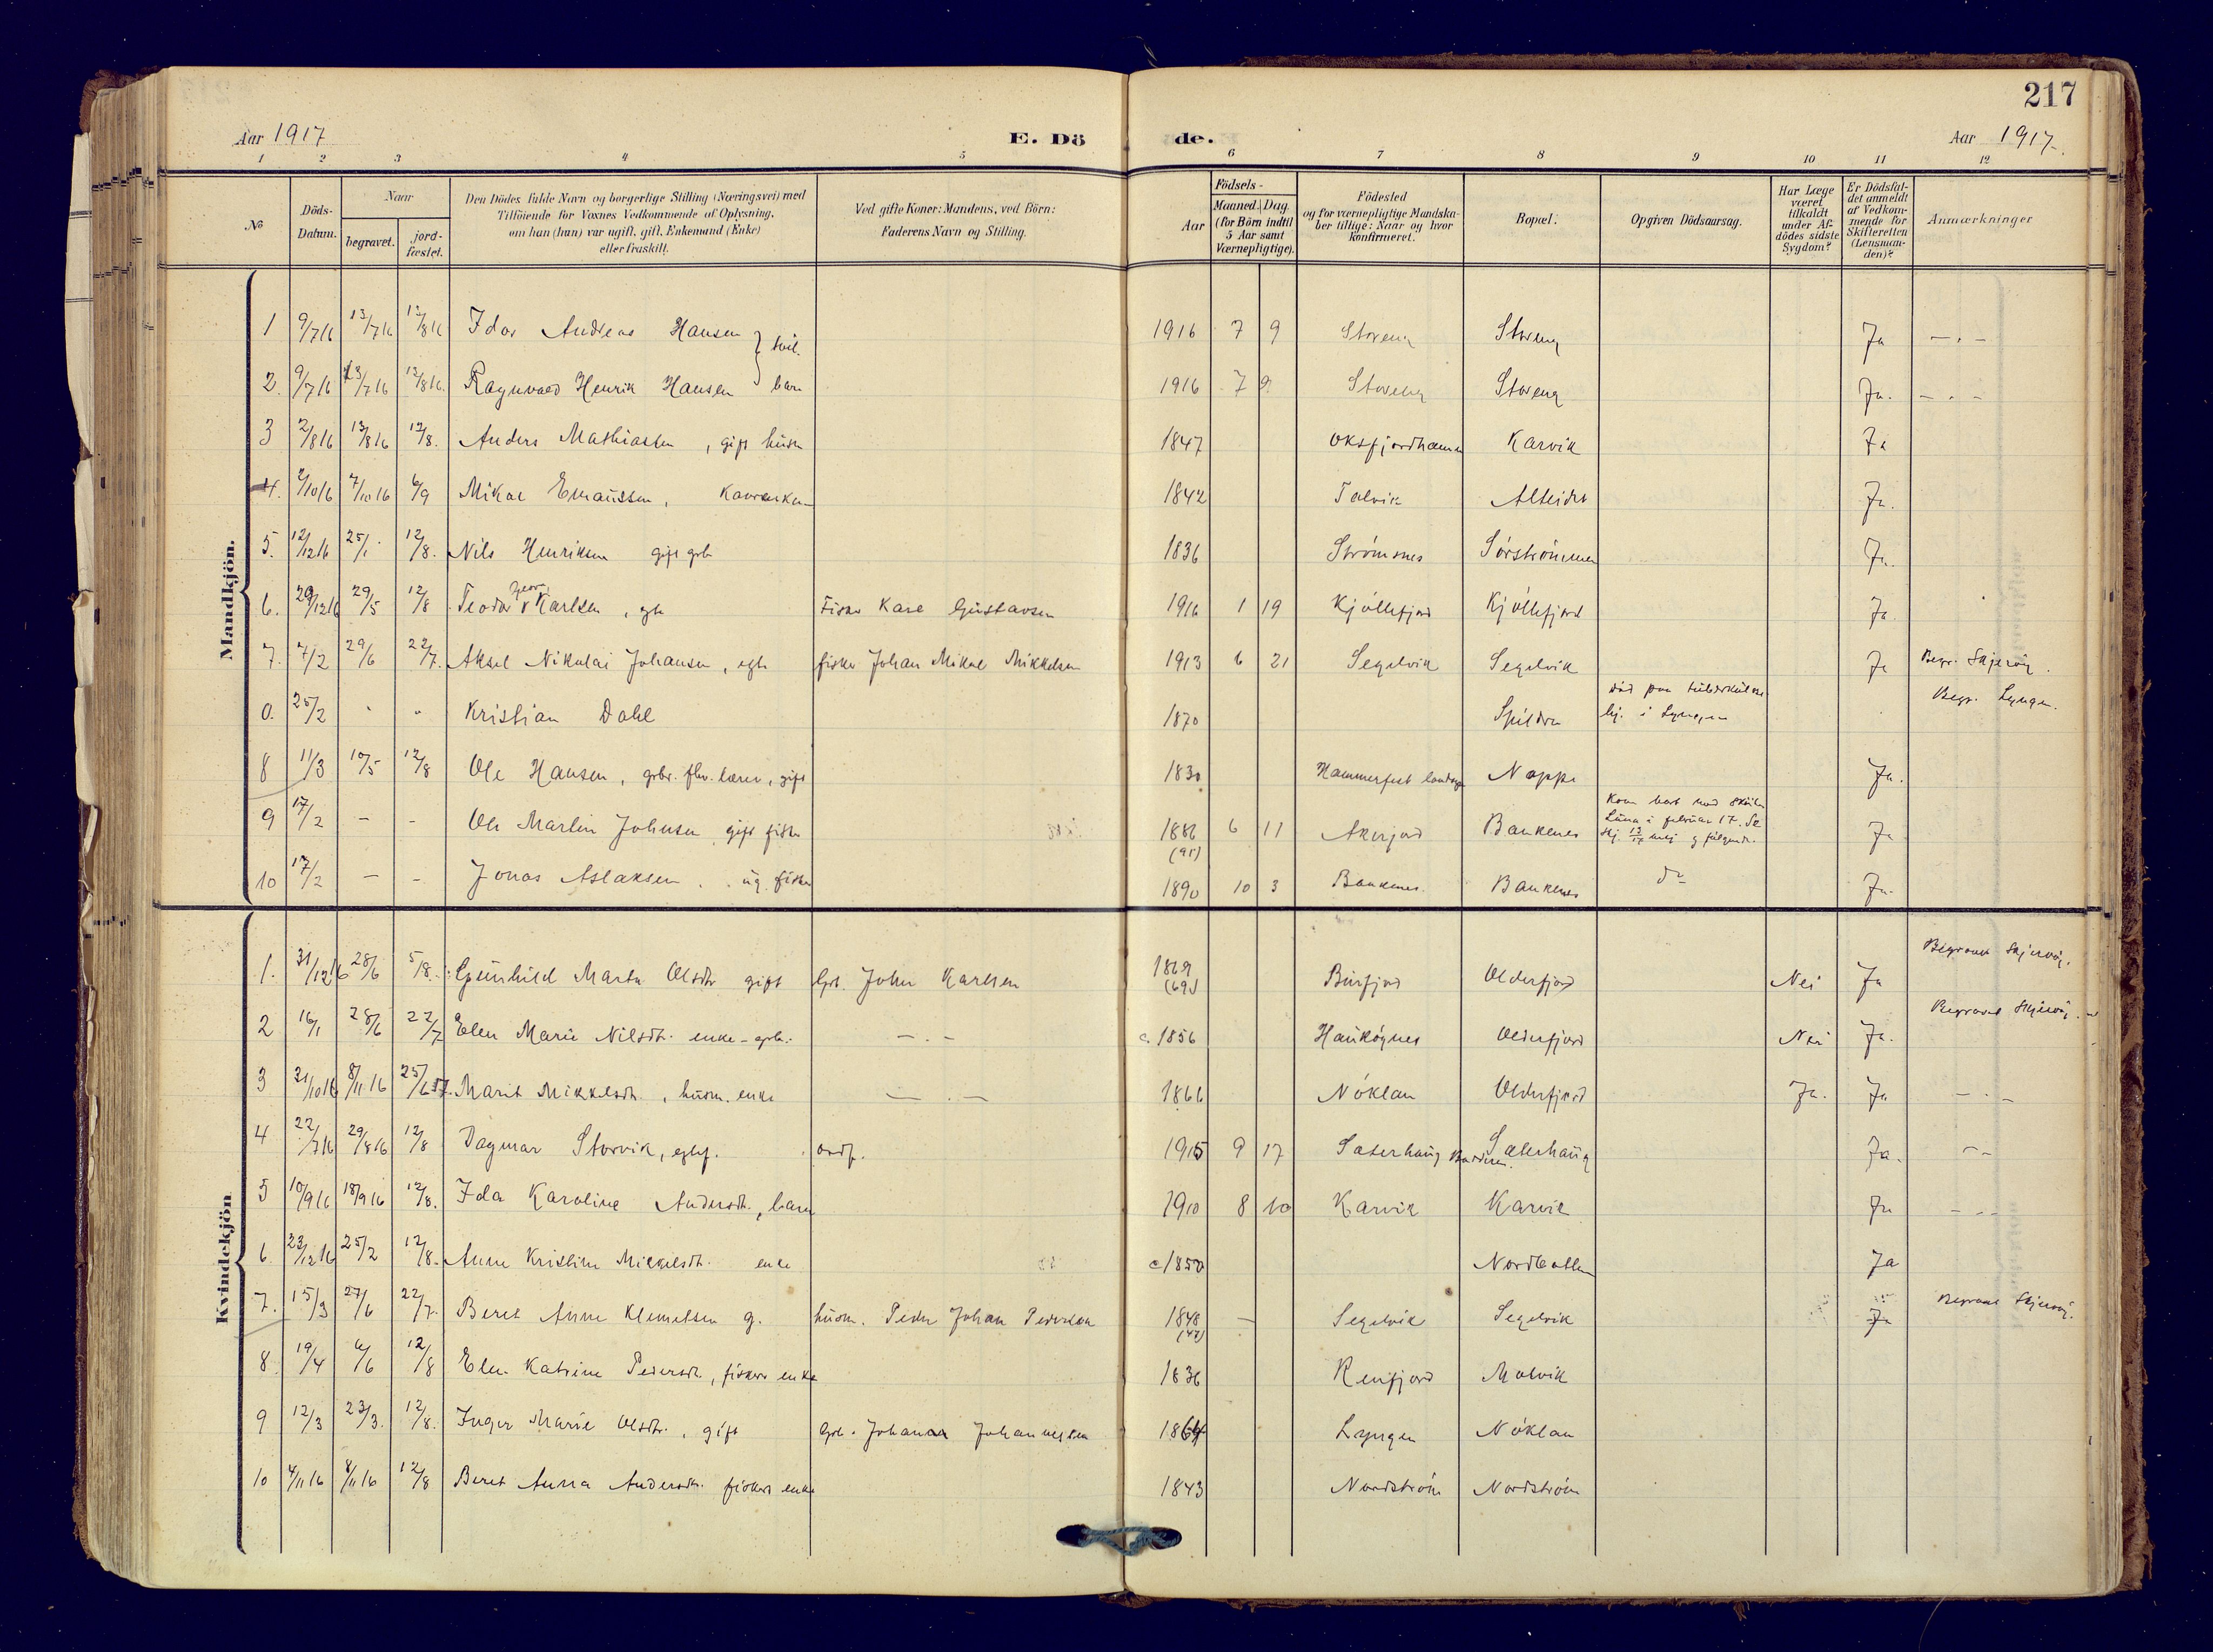 217
Aar 1917 E. Dö de. Aar 1917.
1 2 3 4 5 6 7 8 9 10 11 12
No
Döds-Datum.
Naar
begravet.
jord-fæstet.
Den Dödes fulde Navn og borgerlige Stilling (Næringsvei) med
Tilföiende for Voxnes Vedkommende af Oplysning,
om han (hun) var ugift, gift, Enkemand (Enke)
eller fraskilt.
Ved gifte Koner: Mandens, ved Börn:
Faderens Navn og Stilling.
Aar
Födsels-
Maaned. Dag.
(for Börn indtil
5 Aar samt
Værnepligtige).
Födested
og for værnepligtige Mandska-
ber tillige: Naar og hvor
konfirmeret.
Bopæl.
Opgiven Dödsaarsag.
Har Læge
været
tilkaldt
under Af-
dödes sidste
Sygdom?
Er Dödsfal-
det anmeldt
af Vedkom-
mende for
Skifteretten
(Lensman-
den)?
Anmærkninger
Mandkjön.
1 9/7 16 13/7 16 12/8 16 Idar Andreas Hansen } tvil. 1916 7 9 Storeng Storeng Ja - " -
2. 9/7 16 13/7 16 12/8 16. Ragnvald Henrik Hansen barn 1916 7 9. Storeng Storeng Ja. - " -
3 2/8 16 13/8 16 12/8. Anders Mathiassen, gift husm 1847 Oksfjordhamn Karvik Ja
4. /10 16 7/10 16 6/9 Mikal Emaussen, 1842 Talvik Alteidet Ja.
5. 12/12 16 25/1 12/8. Nils Henriksen gift grb 1836 Strömsnes Sörströmmen Ja.
6. 29/12 16 29/5 12/8 Teodor Georg Karlsen, Fisker Karl Gustavsen 1916 1 19 Kjöllefjord Kjöllefjord Ja.
7. 7/2 29/6 22/7. Aksel Nikolai Johansen, egte fisker Johan Mikal Mikkelsen 1913 6 21 Segelvik Segelvik Ja Begr. Skjervöy.
0. 25/2 " " Kristian Dahl 1870 Spildra död paa tuberkulose
hj. i Lyngen Begr. Lyngen.
8 11/3 10/5 12/8 Ole Hansen, grbr. fhv. lærer, gift 1830 Hammerfest landsogn Noppi Ja.
9 17/2 - - Ole Martin Johnsen gift fisker 1886 6 11 Akerfjord Bankenes Kom bort med sköiten
Luna i februar 17. Se
Ja
10 17/2 - - Jonas Aslaksen, ug. fisker 1890 10 3 Bankenes. Bankenes do Ja.
Kvindekjön
1. 31/12 16 28/6 5/8. Gunhild Marta Olsdtr gift Grb. John Karlsen 1869 (69) Burfjord Olderfjord Nei Ja Begravet Skjervöy.
2 16/1 28/6 22/7 Elen Marie Nilsdtr. enke - grb. - " - c. 1856 Hauköynes Olderfjord Nei Ja. Begravet Skjervöy.
3 31/10 16 8/11 16 25/6 17. Marit Mikkelsdtr., husm. enke - " - 1866 Nöklan Olderfjord Ja. Ja - " -
4 22/7 16 29/8 16 12/8 Dagmar Storvik, egtef. ordf. 1915 9 17 Saterhaug Badderen. Saterhaug Ja. - -
5 10/9 16 18/9 16 12/8. Ida Karoline Andersdtr., barn 1910 8 10 Karvik Karvik Ja - - -
6 23/12 16 25/2 12/8. Anne Kristine Mikkelsdtr. enke c 1850 Nordbotten Ja
7. 15/3 27/6 22/7. Beret Anne Klemetsen g. husm. Peder Johan Pedersen 1848 (42) - Segelvik Segelvik Ja Begravet Skjervöy.
8. 19/4 6/6 12/8 Elen Katrine Pedersdtr., fiskers enke 1836 Reinfjord Molvik
9 12/3 23/3. 12/8. Inger Marie Olsdtr., gift Grb. Johan Johannessen 1864 Lyngen Nöklan
10 4/11 16 8/11 16 12/8 Beret Anna Andersdtr. fiskers enke 1843 Nordström Nordström